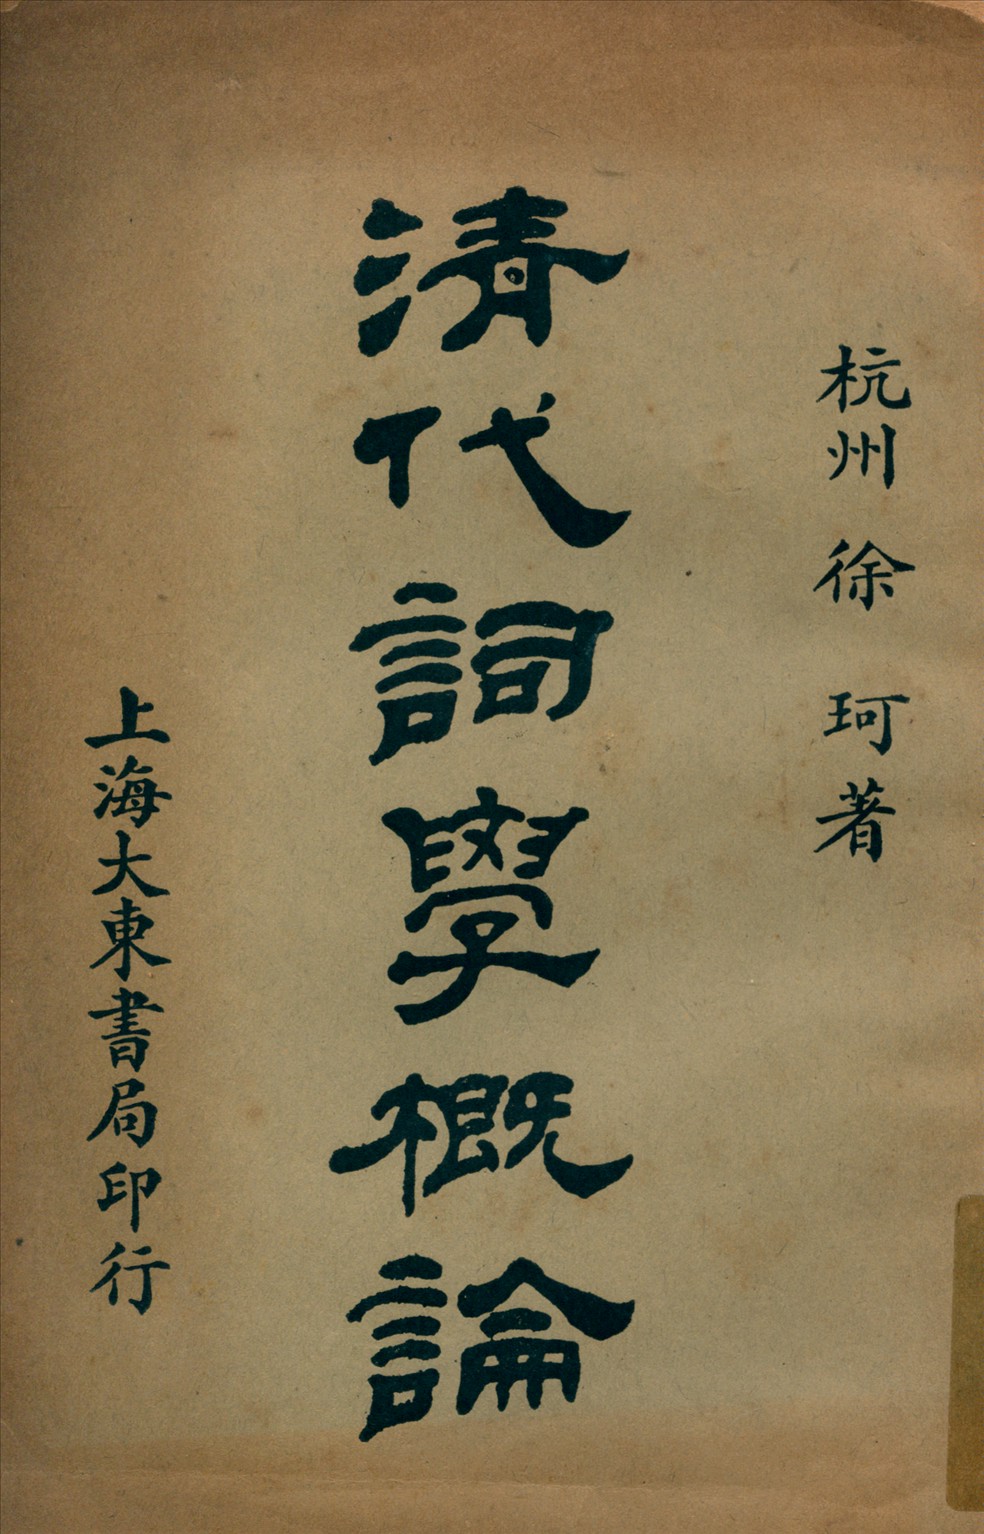 杭州徐珂著
清代詞學概論
上海大東書局印行